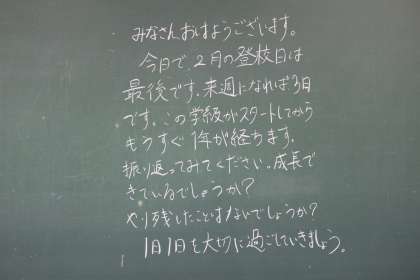 みなさんおはようございます。
今日で、2月の登校日は
最後です。来週になれば3月
です。この学級がスタートしてから
もうすぐ1年が経ちます。
振り返ってみてください。成長で
きているでしょうか?
やり残したことはないでしょうか?
1日1日を大切に過ごしていきましょう。